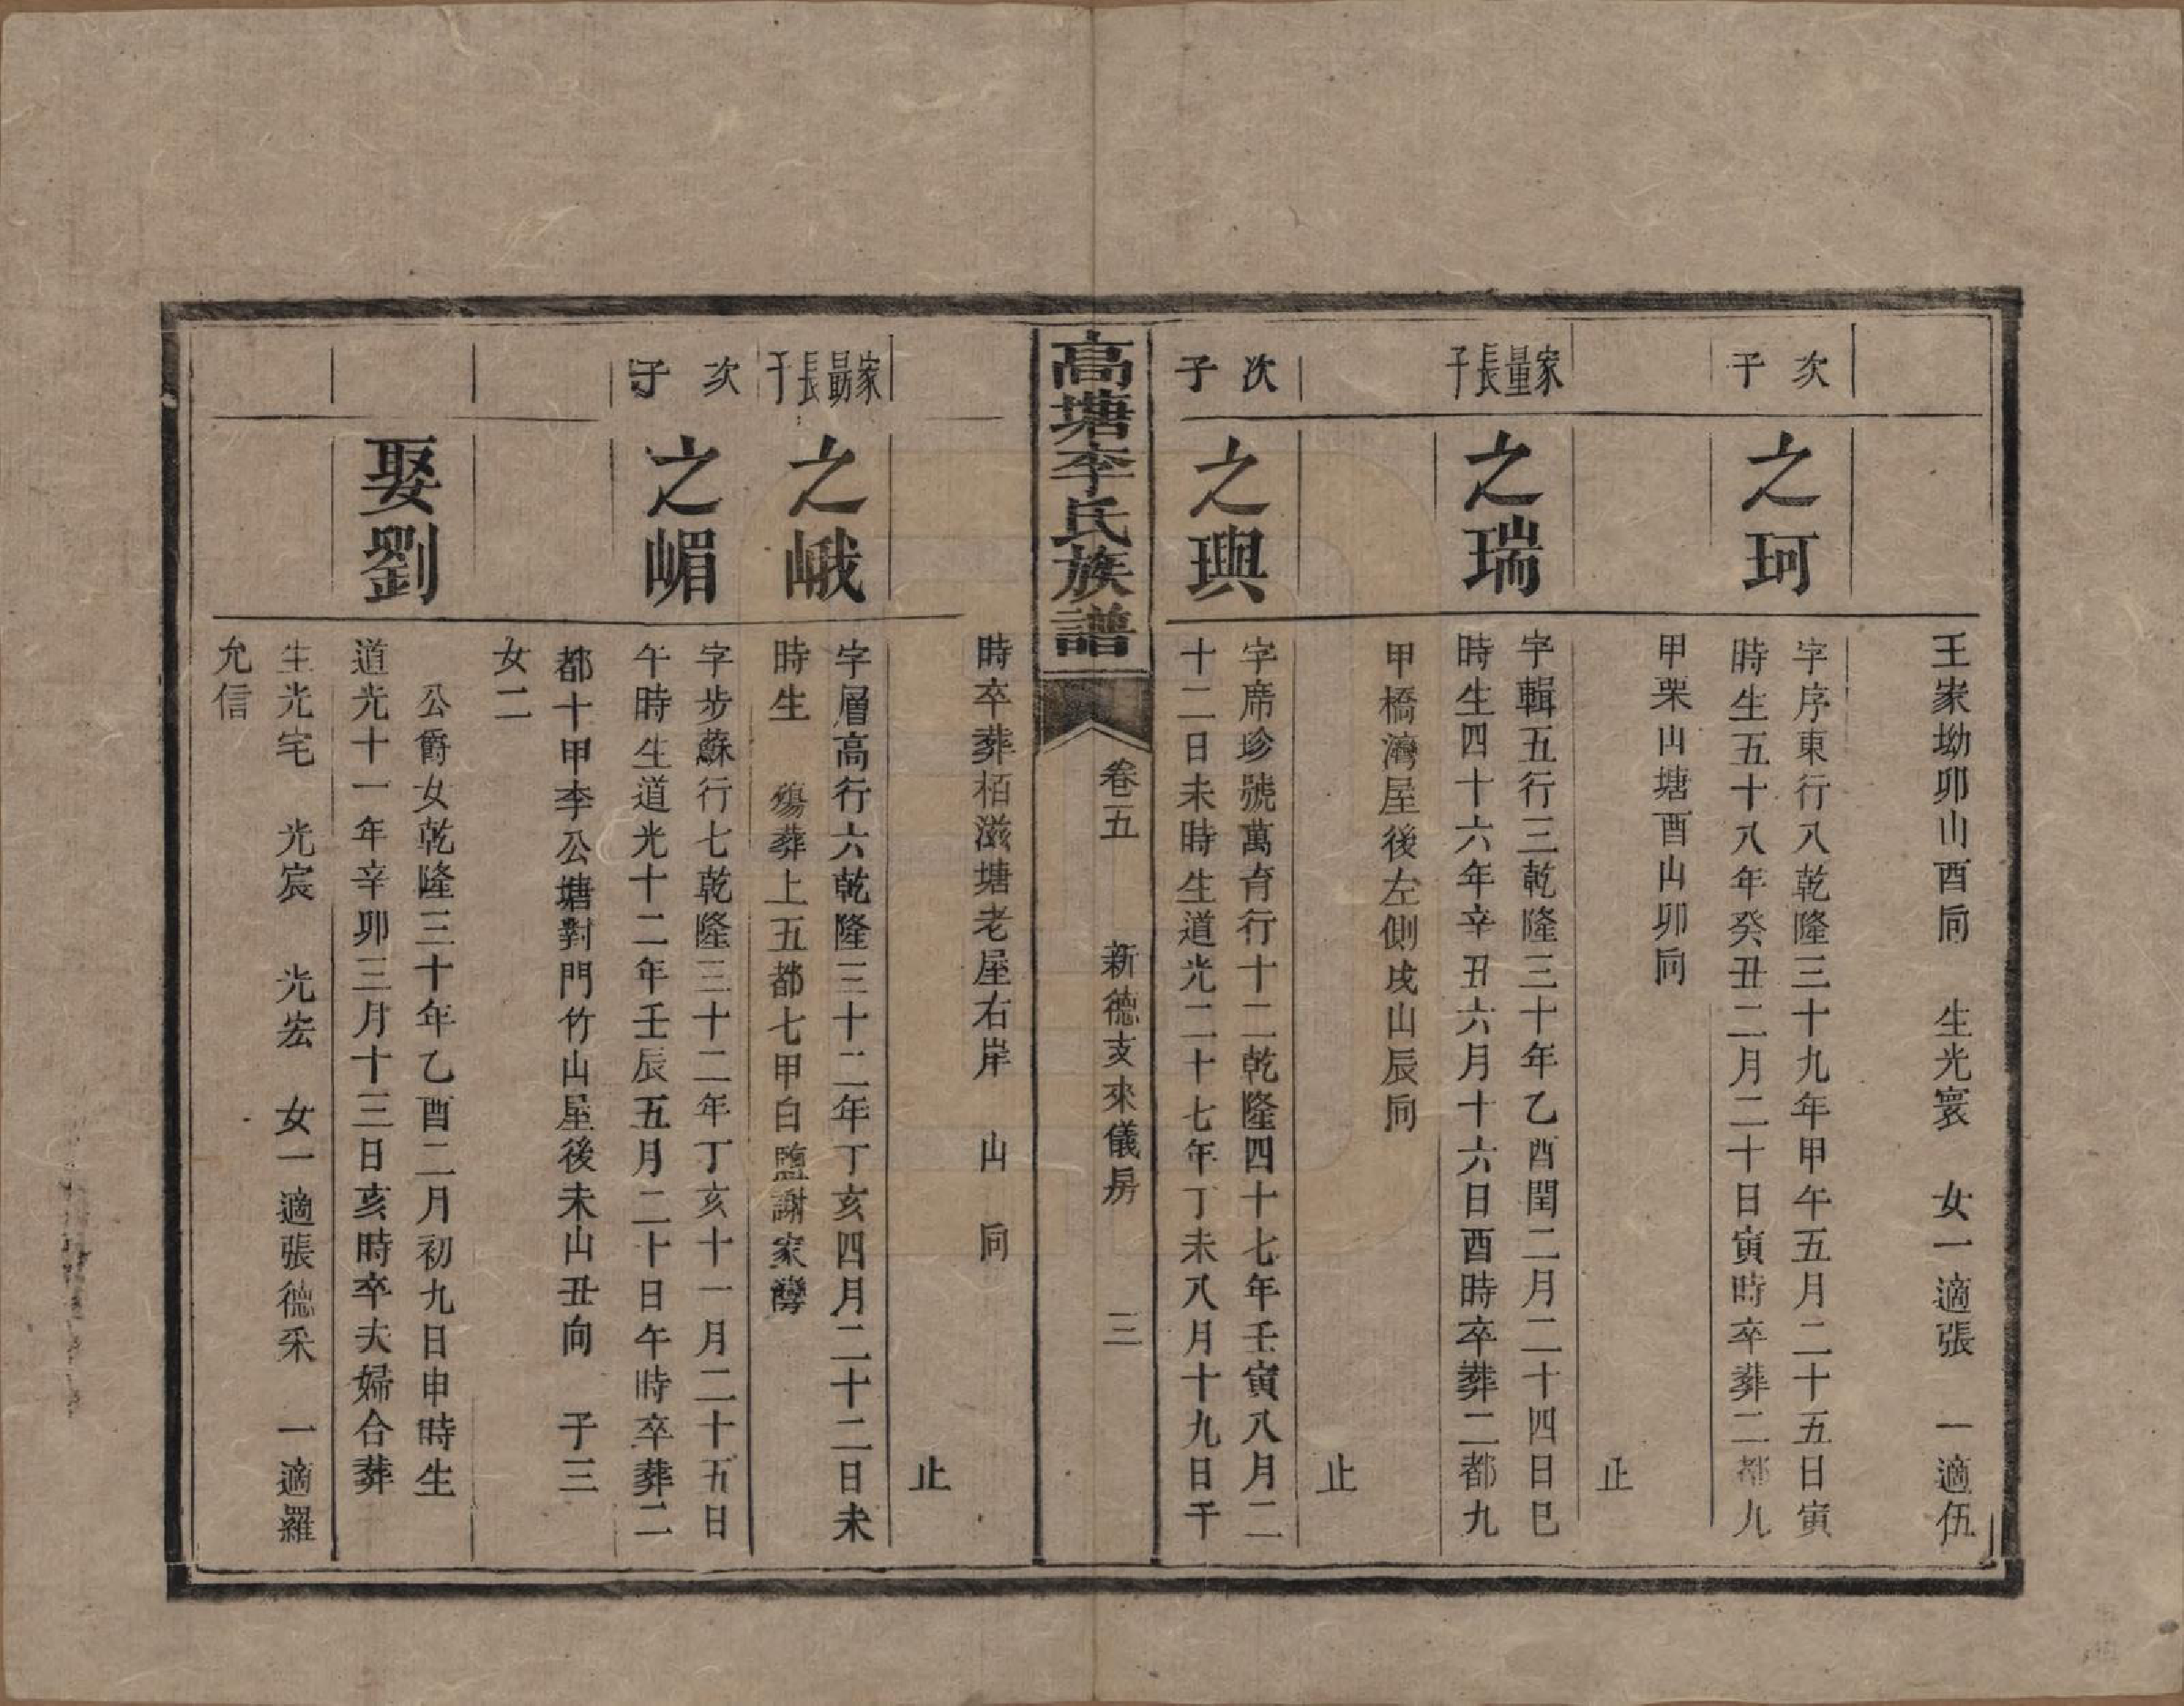 王家坳卯山酉向　生光寰　女一適張　一適伍
次子
之珂
字序東行八乾隆三十九年甲午五月二十五日寅
時生五十八年癸丑二月二十日寅時卒葬二都九
甲栗山塘酉山卯向
止
家量長子
之瑞
字輯五行三乾隆三十年乙酉閏二月二十四日巳
時生四十六年辛丑六月十六日酉時卒葬二都九
甲橋灣屋後左側戌山辰向
止
次子
之璵
字席珍號萬育行十二乾隆四十七年壬寅八月二
十二日未時生道光二十七年丁未八月十九日午
高塘李氏族譜
卷五　新德支來儀房　三
時卒葬栢滋塘老屋右岸　山　向
止
家勗長子
之峨
字層高行六乾隆三十二年丁亥四月二十二日未
時生　殤葬上五都七甲白鹽謝家灣
次子
之嵋
字步蘇行七乾隆三十二年丁亥十一月二十五日
午時生道光十二年壬辰五月二十日午時卒葬二
都十甲李公塘對門竹山屋後未山丑向　子三
女二
娶劉
公爵女乾隆三十年乙酉二月初九日申時生
道光十一年辛卯三月十三日亥時卒夫婦合葬
生光宅　光宸　光宏　女一適張德采　一適羅
允信